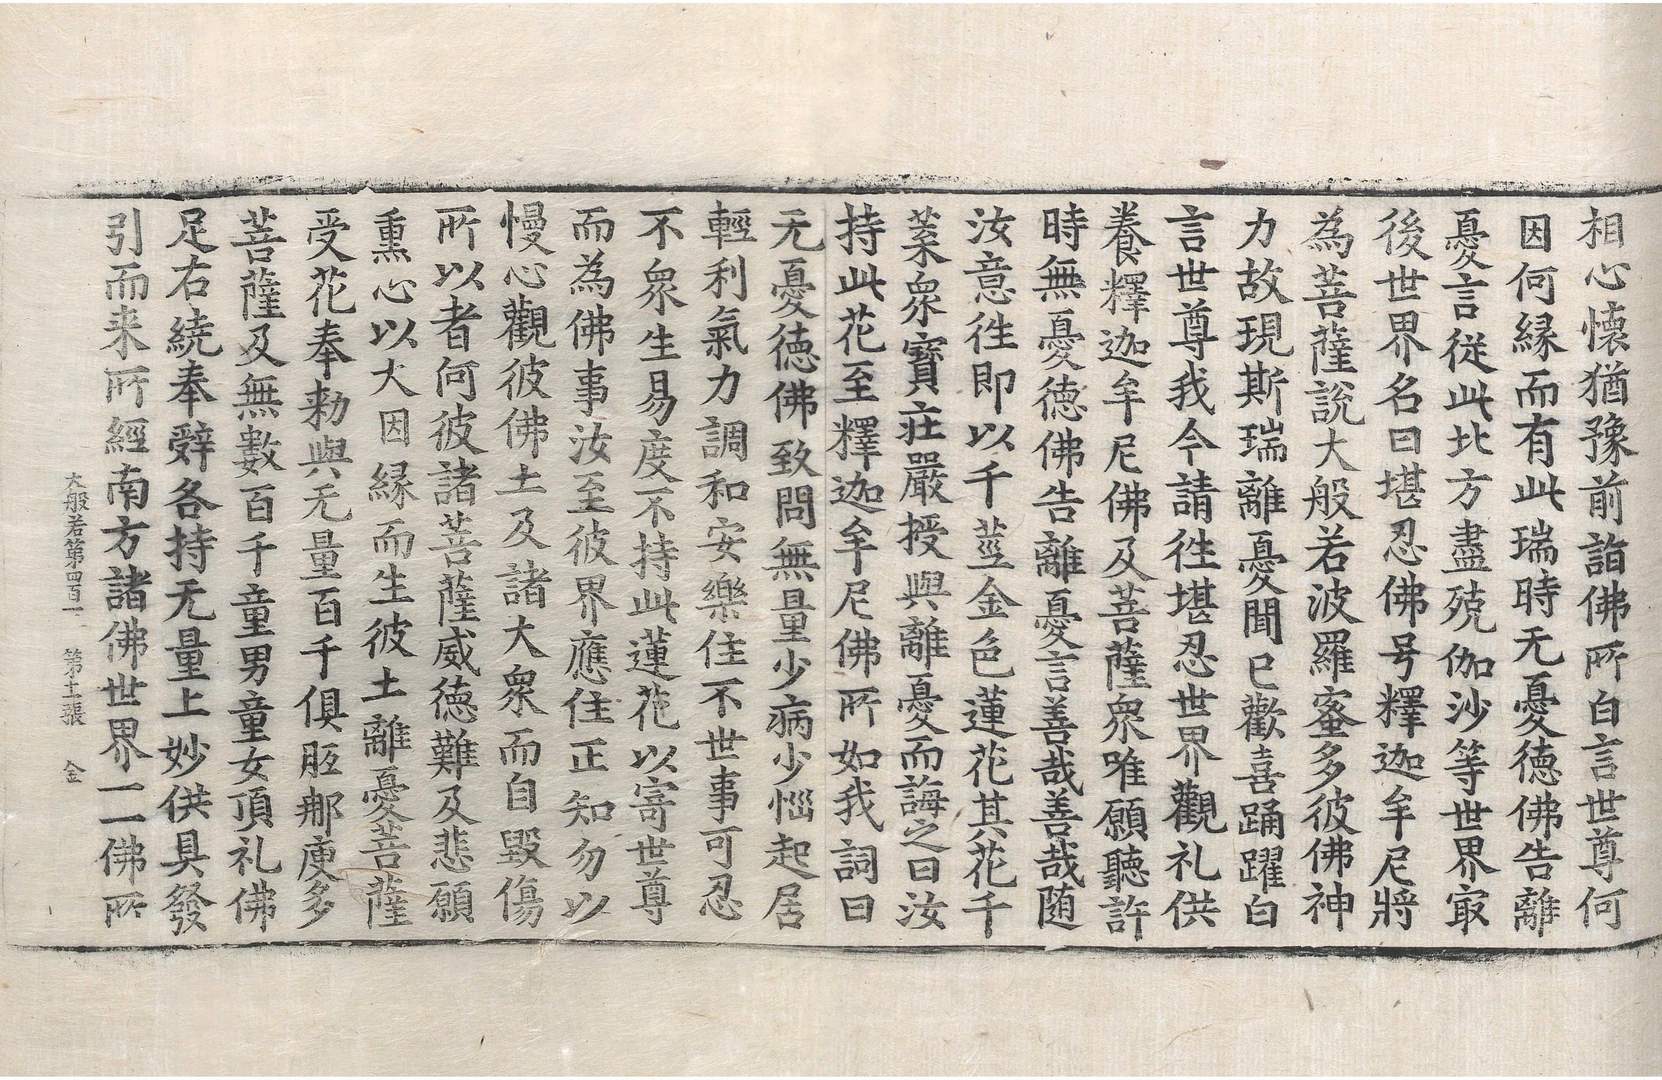 相心懷猶豫前詣佛所白言世尊何
因何縁而有此瑞時无憂德佛告離
憂言從此北方盡殑伽沙等世界㝡
後世界名曰堪忍佛号釋迦牟尼將
為菩薩說大般若波羅蜜多彼佛神
力故現斯瑞離憂聞已歡喜踊躍白
言世尊我今請徃堪忍世界觀礼供
養釋迦牟尼佛及菩薩衆唯願聽許
時無憂德佛告離憂言善哉善哉随
汝意徃即以千莖金色蓮花其花千
葉衆寶莊嚴授與離憂而誨之曰汝
持此花至釋迦牟尼佛所如我詞曰
无憂德佛致問無量少病少惱起居
輕利氣力調和安樂住不世事可忍
不衆生易度不持此蓮花以寄世尊
而為佛事汝至彼界應住正知勿以
慢心觀彼佛土及諸大衆而自毀傷
所以者何彼諸菩薩威德難及悲願
熏心以大因縁而生彼土離憂菩薩
受花奉勑與无量百千俱胝𨙻庾多
菩薩及無數百千童男童女頂礼佛
足右繞奉辤各持无量上妙供具發
引而来所經南方諸佛世界一一佛所
大般若第四百一　第十一張　金